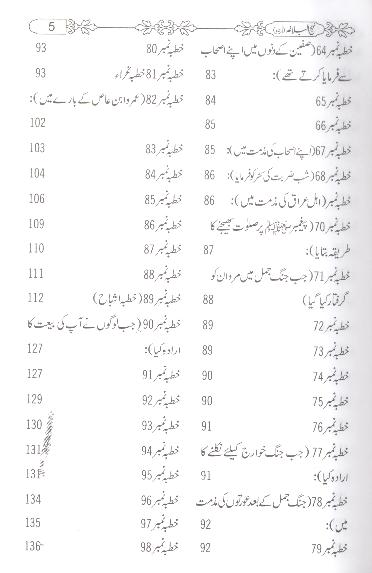 نہج البلاغہ (اردو)
5
خطبہ نمبر 64 (صفین کے دنوں میں اپنے اصحاب
سے فرمایا کرتے تھے): 83
خطبہ نمبر 65 84
خطبہ نمبر 66 85
خطبہ نمبر 67 (اپنے اصحاب کی مذمت میں): 85
خطبہ نمبر 68 (شب ضربت کی سحر کو فرمایا): 86
خطبہ نمبر (اہل عراق کی مذمت میں): 86
خطبہ نمبر 70 (پیغمبر ﷺ پر صلوٰت بھیجنے کا
طریقہ بتایا): 87
خطبہ نمبر 71 (جب جنگ جمل میں مروان کو
گرفتار کیا گیا) 88
خطبہ نمبر 72 89
خطبہ نمبر 73 89
خطبہ نمبر 74 90
خطبہ نمبر 75 90
خطبہ نمبر 76 91
خطبہ نمبر 77 (جب جنگ خوارج کیلئے نکلنے کا
ارادہ کیا): 91
خطبہ نمبر 78 (جنگ جمل کے بعد عورتوں کی مذمت
میں): 92
خطبہ نمبر 79 92
خطبہ نمبر 80 93
خطبہ نمبر 81 خطبہ غراء 93
خطبہ نمبر 82 (عمرو ابن عاص کے بارے میں):
102
خطبہ نمبر 83 103
خطبہ نمبر 84 104
خطبہ نمبر 85 106
خطبہ نمبر 86 109
خطبہ نمبر 87 110
خطبہ نمبر 88 111
خطبہ نمبر 89 (خطبہ اشباح) 112
خطبہ نمبر 90 (جب لوگوں نے آپ کی بیعت کا
ارادہ کیا): 127
خطبہ نمبر 91 127
خطبہ نمبر 92 129
خطبہ نمبر 93 130
خطبہ نمبر 94 131
خطبہ نمبر 95 131
خطبہ نمبر 96 134
خطبہ نمبر 97 135
خطبہ نمبر 98 136